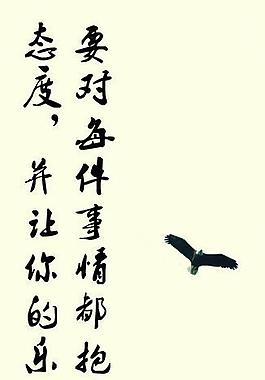 要对每件事情都抱
态度，并让你的乐